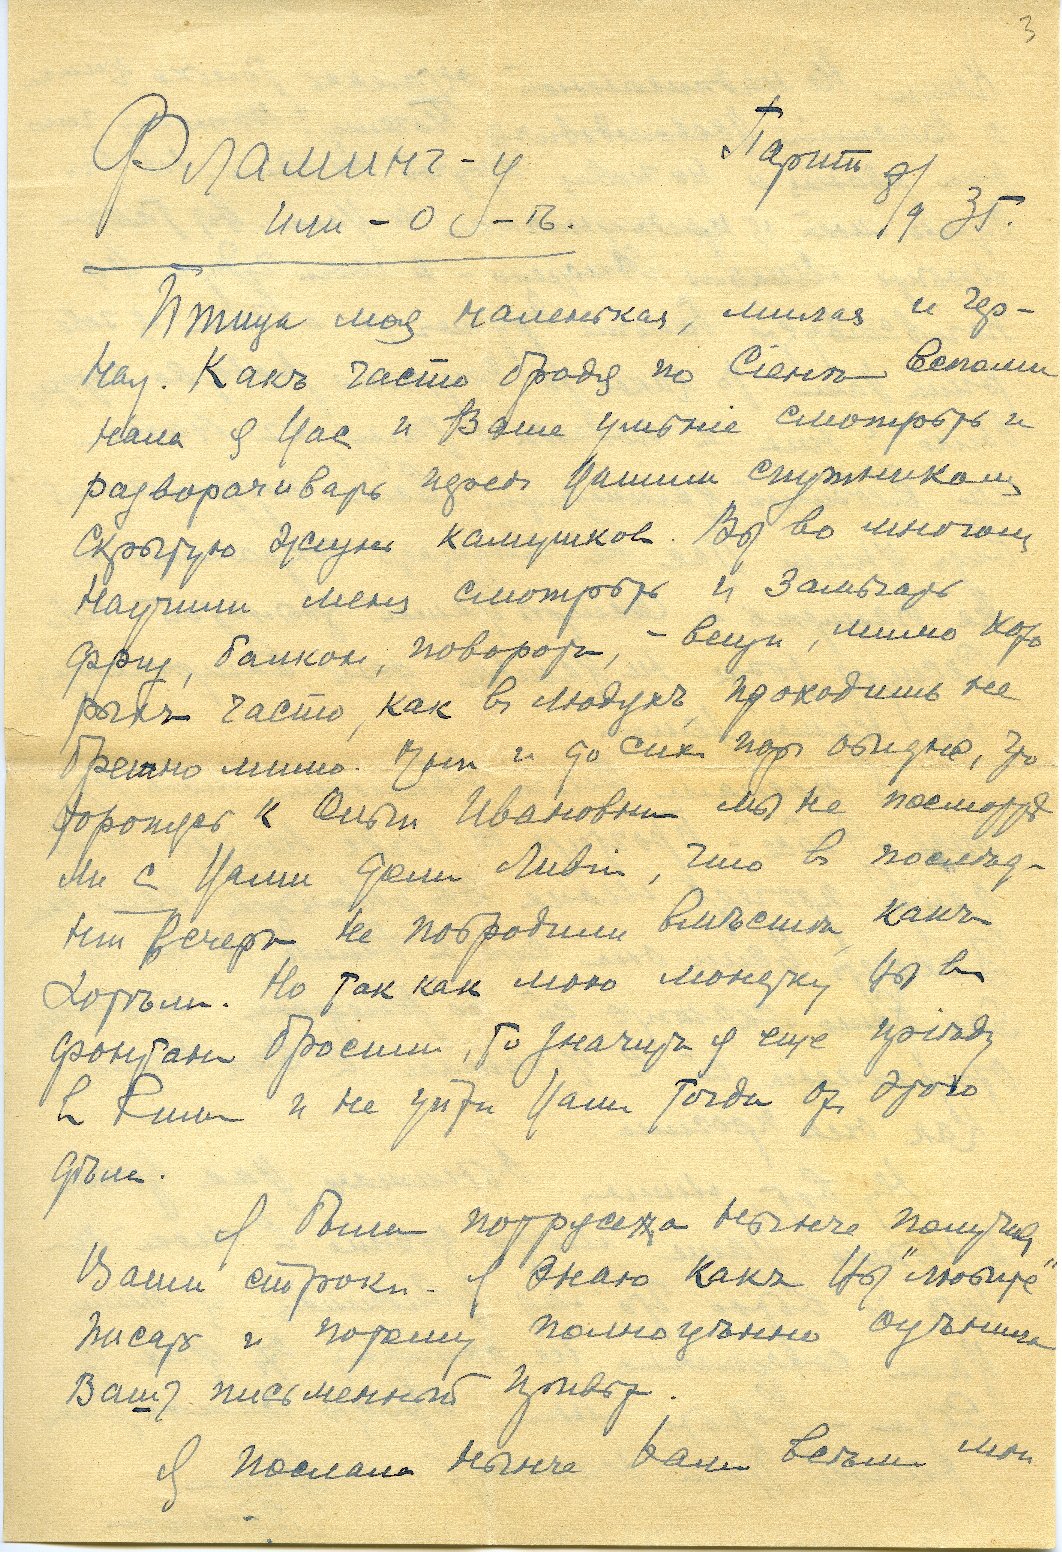 3
Фламинг-у
или -О-ъ.
Парижъ 8/9 35.
Птица моя маленькая, милая и чер-
ная. Какъ часто бродя по Сіенѣ вспоми
нала я Вас и Ваше умѣніе смотрѣть и
разворачивать предъ Вашим спутником
скрытую жизнь камушков. Вы во многом
научили меня смотрѣть и замѣчать
фриз, балкон, поворот, - вещи, мимо кото
рых часто, как в людяхъ, проходишь не
брежно мимо. Мнѣ и до сих пор обидно, что
торопясь к Ольгѣ Ивановнѣ мы не посмотрѣ
ли с Вами дом Ливіи, что в послѣд-
ній вечеръ не побродили вмѣстѣ, какъ
хотѣли. Но так как мою монетку Вы в
фонтан бросили, то значитъ я еще пріѣду
в Рим и не уйти Вам тогда от этого
дѣла.
Я была потрясена нынче получив
Ваши строки. Я знаю какъ Вы "любите"
писать и потому полноцѣнно оцѣнила
Ваш письменный привѣт.
Я послала нынче Вам всѣм мои